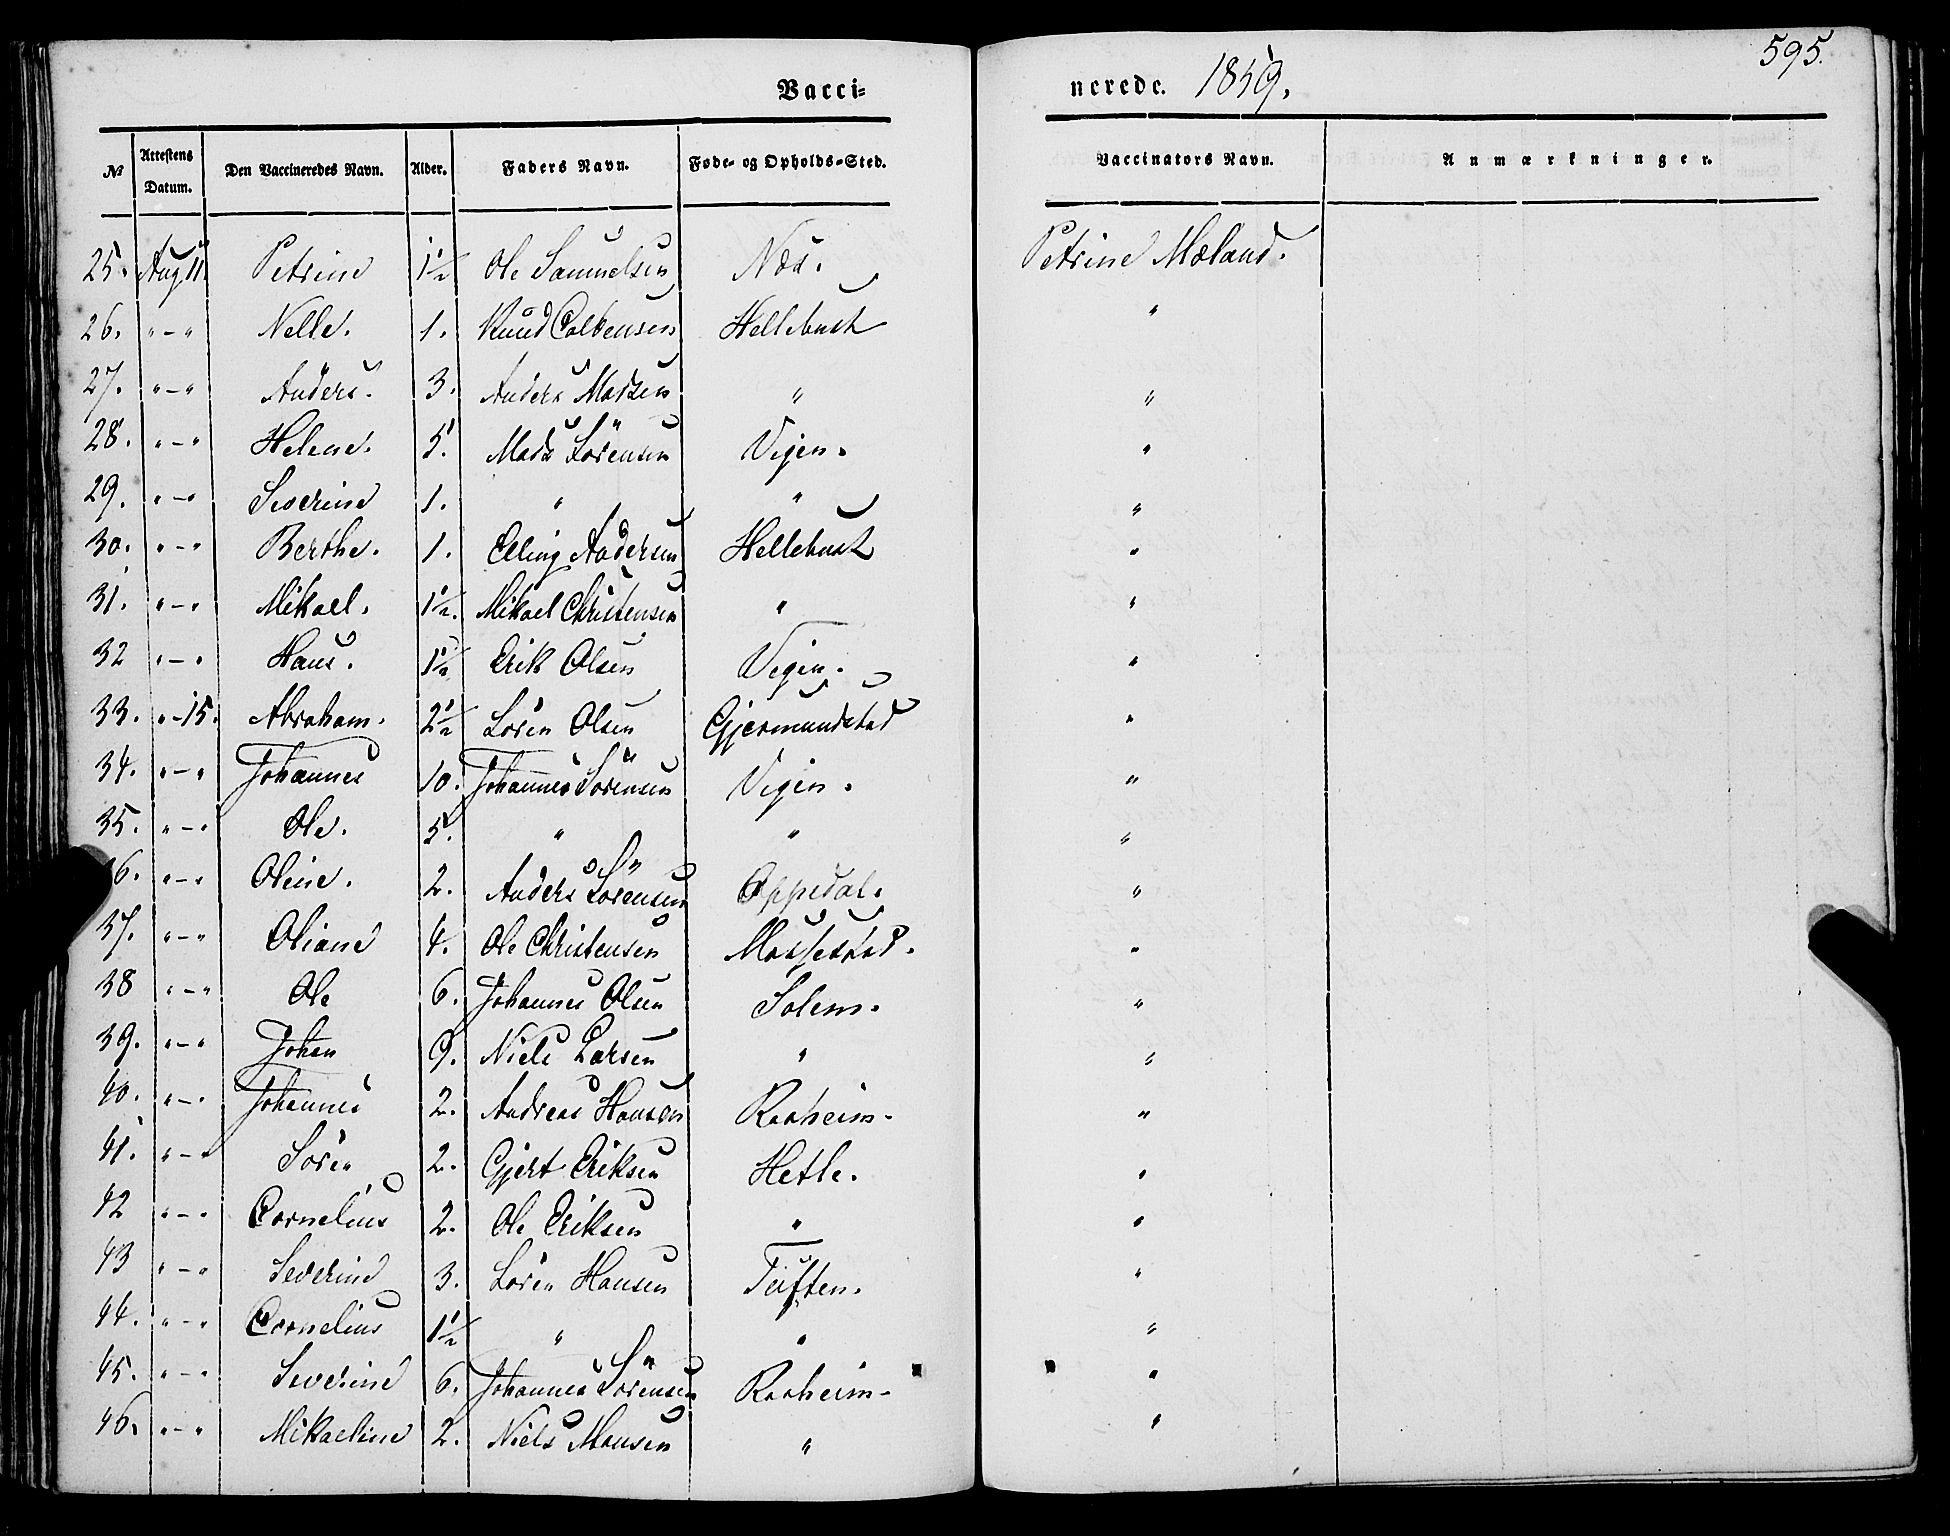 595.
Vacci- nerede. 1859.
№ Attestens Datum. Den Vaccineredes Navn. Alder. Faders Navn. Føde- og Opholds-Sted. Vaccinators Navn. Anmærkninger.
25. Aug 11. Petrine 1½ Ole Samuelsen Næs. Petrine Mæland.
26. " - " Nelle. 1. Knud Colbensen Hellebust "
27. " - " Anders. 3. Anders Madsen " "
28. " - " Helene. 5. Mads Sørensen Vigen. "
29. " - " Severine 1. " " "
30. " - " Berthe. 1. Elling Andersen Hellebust "
31. " - " Mikael. 1½. Mikael Christensen " "
32 " - " Hans. 1½ Erik Olsen Vigen. "
33. " - 15. Abraham. 2½ Søren Olsen Gjermundstad "
34. " - " Johannes 10. Johannes Sørensen Vigen. "
35. " - " Ole. 5. " " "
6. " - " Oline. 2. Anders Sørensen Oppedal. "
37. " - " Oliane 4. Ole Christensen Massestad. "
38 " - " Ole 6. Johannes Olsen Solem. "
39. " - " Johan 9. Niels Larsen " "
40. " - " Johannes 2. Andreas Hansen Raaheim. "
41. " - " Søren 2. Gjert Eriksen Hetle. "
42 " - " Cornelius 2. Ole Eriksen " "
43 " - " Severine 3. Søren Hansen Tuften. "
44. " - " Cornelius 1½ " " "
45. " - " Severine 6. Johannes Sørensen Raaheim. "
46. " - " Mikaeline 2. Niels Monsen " "